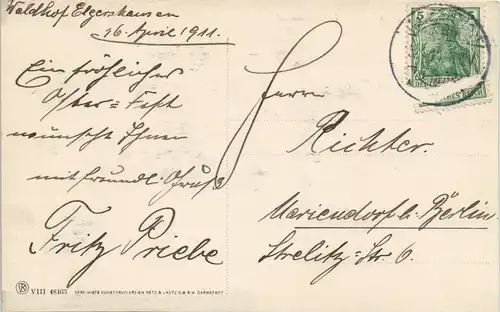 Waldhof Elgershausen
16. April 1911.
Ein fröhliches
Oster=Fest
wünscht Ihnen
mit freundl. Gruß
Fritz Priebe
Herrn
Richter.
Mariendorf b. Berlin.
Strelitz-Str. 6.
5 5
VIII 48163 VEREINIGTE KUNSTDRUCKEREIEN METZ & LAUTZ G.M.B.H. DARMSTADT